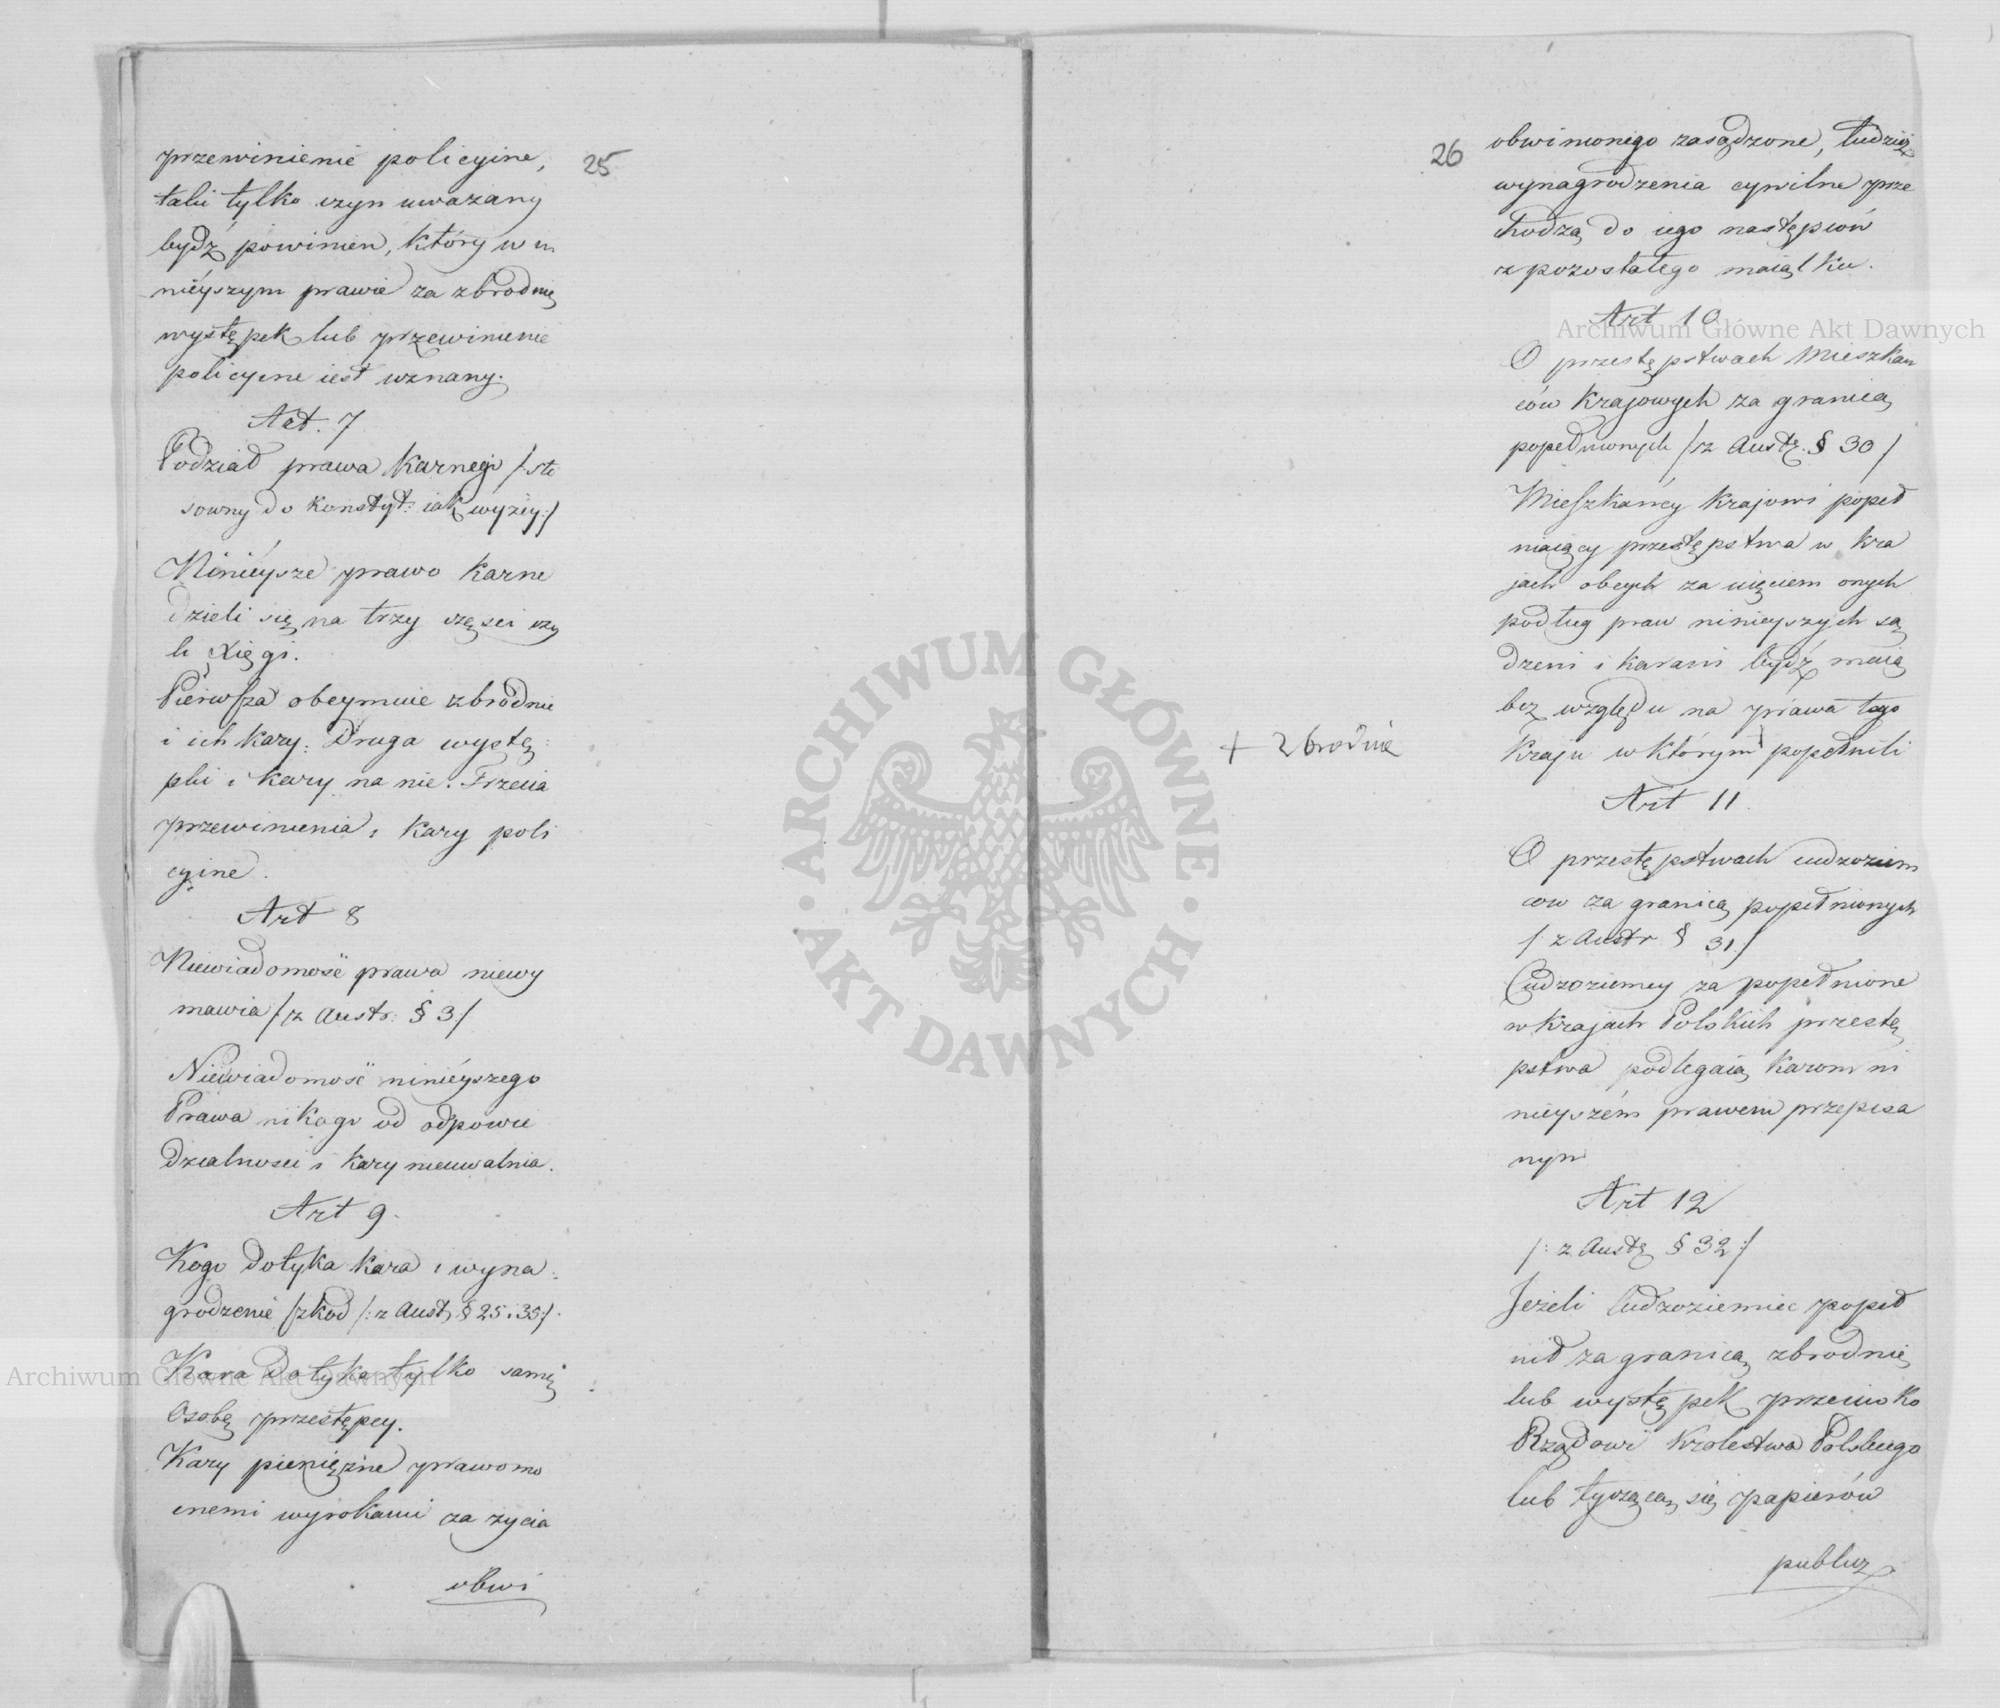 25
przewinienie policyine,
taki tylko czyn uwazany
bydź powinien, który w ni
niéyszym prawie za zbrodnię
występek lub przewinienie
policyine iest uznany.
Art. 7
Podział prawa karnego /:sto
sowny do Konstyt: iak wyżéy:/
Ninieysze prawo karne
dzieli się na trzy części czy
li Xięgi.
Pierwsza obeymuie zbrodnie
i ich kary: Druga wystę=
pki i kary na nie. Trzecia
przewinienia i kary poli
cyine.
Art 8
Niewiadomość prawa niewy
mawia /:z Austr: § 3/
Niewiadomość ninieyszego
Prawa nikogo od odpowie
dzialnosci i kary nieuwalnia.
Art 9.
Kogo dotyka kara i wyna=
grodzenie szkod /: z Aust. § 25 i 35:/.
Kara dotyka tylko samę
Osobę przestępcy.
Kary pieniężne prawomo
cnemi wyrokami za zycia
obwi
26
obwinionego zasądzone, tudzież
wynagrodzenia cywilne prze
chodzą do iego następców
z pozostałego maiątku.
Art 10
O przestępstwach Mieszkań
ców krajowych za granicą
popełnionych /:z Austr. § 30/
Mieszkańcy krajowi popeł
niaiący przestępstwa w kra
jach obcych za uięciem onych
podług praw ninieyszych są
dzeni i karani bydź maią
bez względu na prawa tego
Kraju w którym popełnili
+ zbrodnię
Art 11.
O przestępstwach cudzoziem
cow za granicą popełnionych
/: z Austr § 31:/
Cudzoziemcy za popełnione
w krajach Polskich przestę
pstwa podlegaią karom ni
nieyszém prawem przepisa
nym
Art 12
/: z Austr § 32:/
Jeżeli Cudzoziemiec popeł
nił za granicą zbrodnię
lub występek przeciwko
Rządowi Krolestwa Polskiego
lub tyczącą się papierów
publicz
Archiwum Główne Akt Dawnych
Archiwum Główne Akt Dawnych
ARCHIWUM GŁÓWNE · AKT DAWNYCH ·